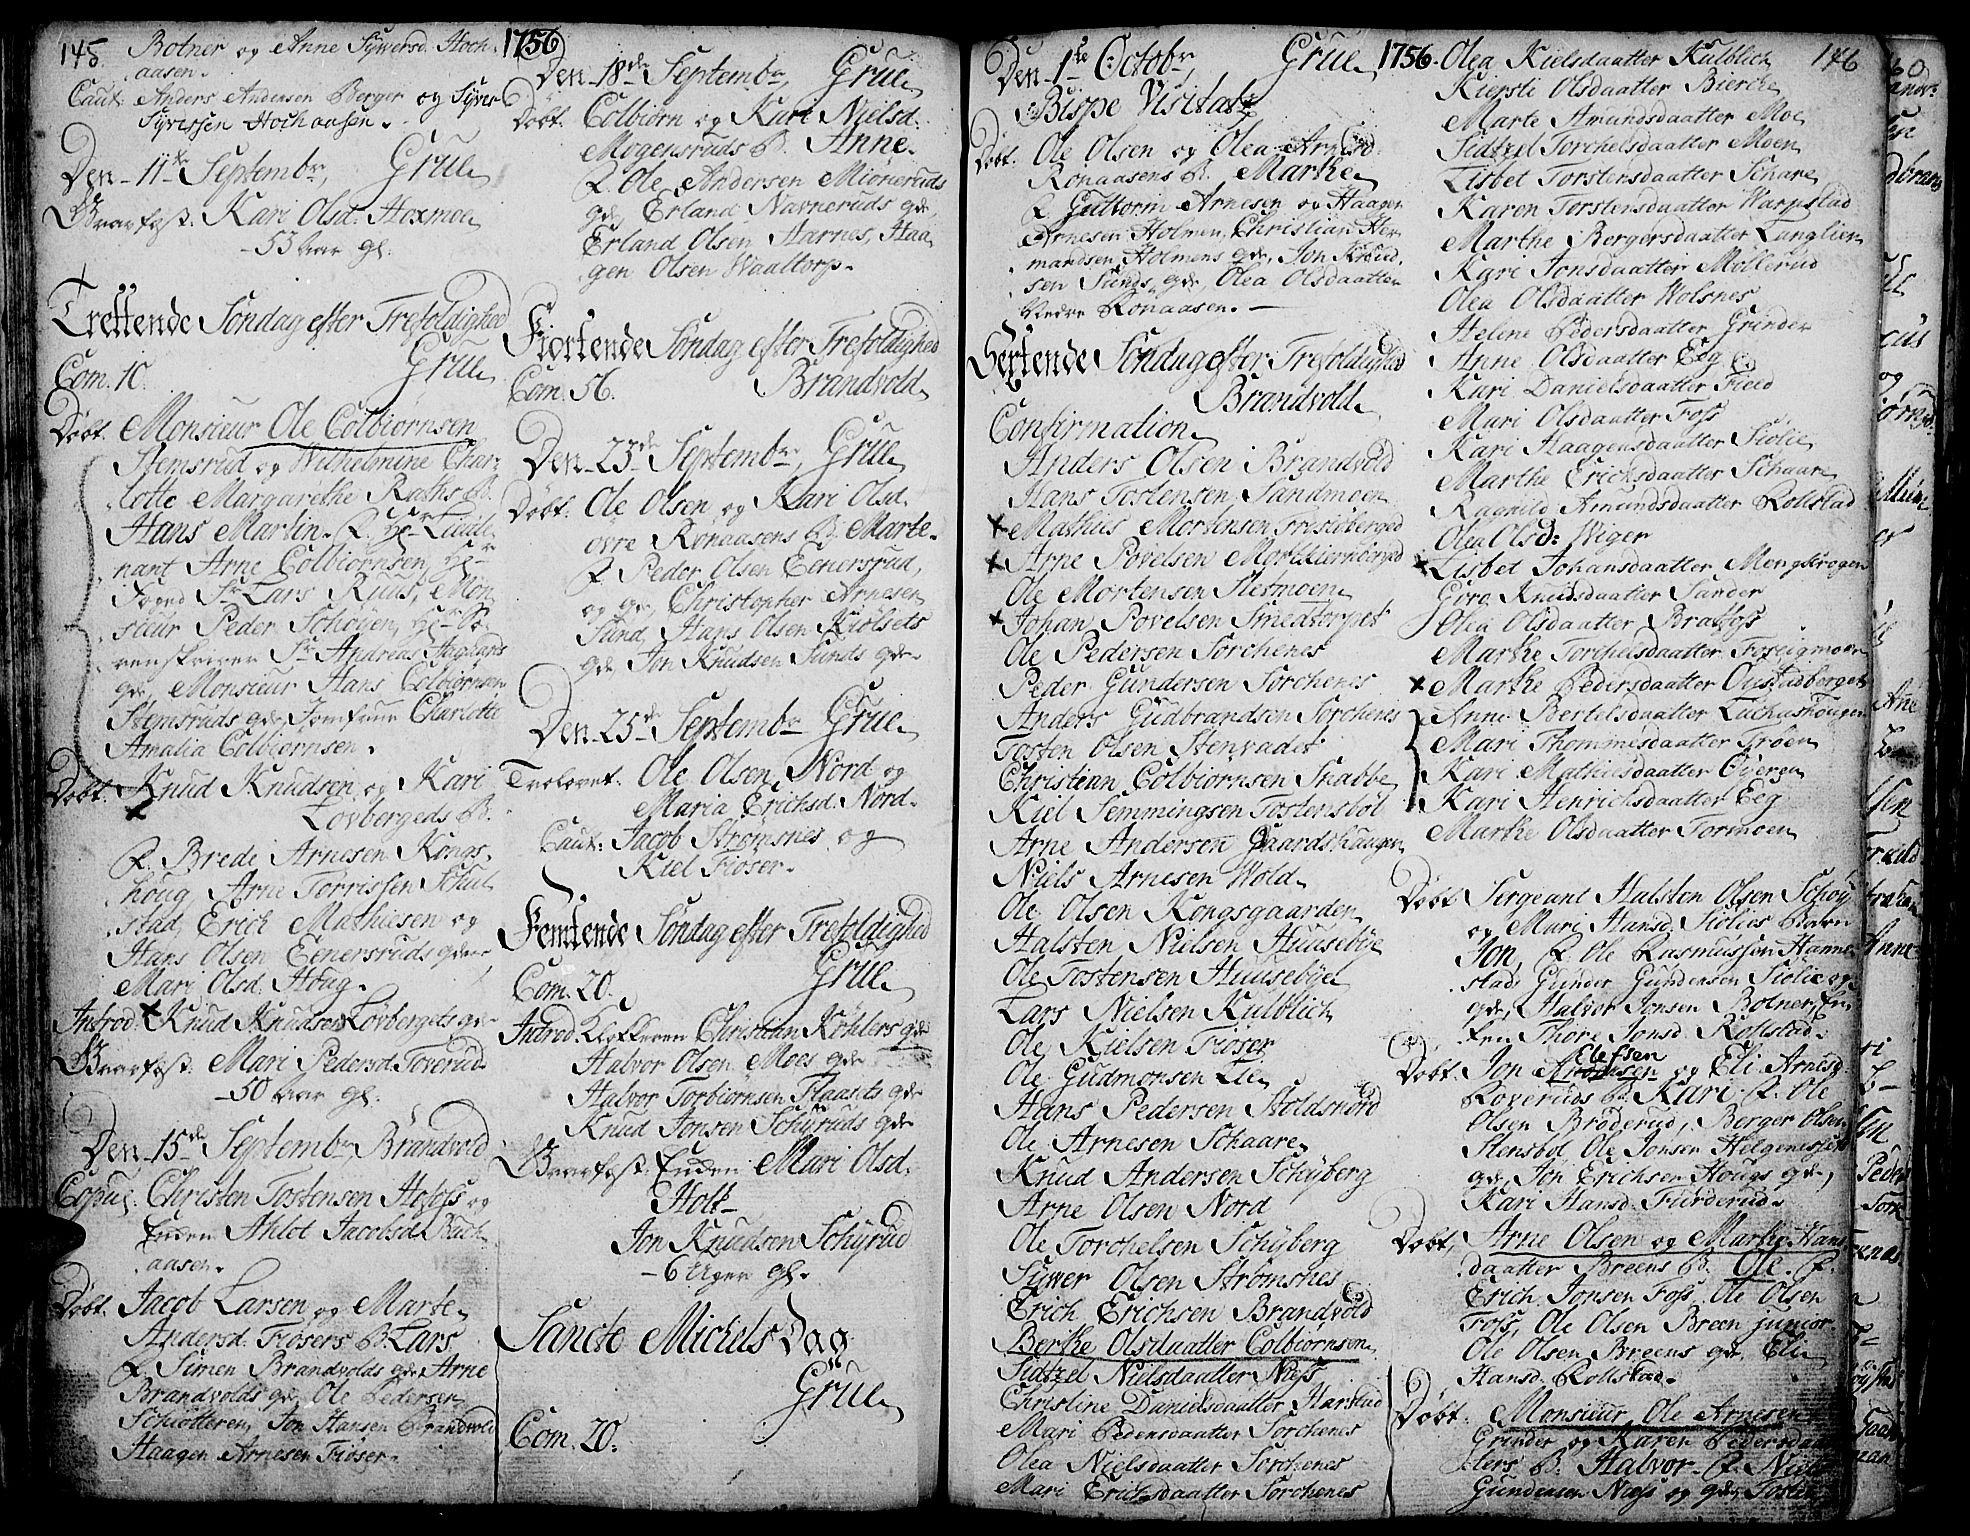 145.
Botner og Anne Sÿversd. Hoch-
aasen.
Caut: Anders Andersen Berger og Sÿver
Sÿverssen Hochaasen.
Den 11te Septembr, Grue
Kari Olsd. Hoxmoe
53 aar gl.
Trettende Søndag efter Trefoldighed
Com. 10. Grue
Døbt. Monsieur Ole Colbiørnsen
Stemsrud og Wilhelmine Char-
lotte Margarethe Raths B.
Hans Martin. F. Hr Lieute-
nant Arne Colbiørnsen, Hr
Foged Sr Lars Riiis, Mon-
sieur Peder Schøyen, Hr So-
renskriver Sr Andreas
gde, Monsieur Hans Colbiørnsen
Stemsruds gde, Jomfrue Charlotte
Amalia Colbiørnsen.
Døbt. Knud Knudsen og Kari
Lovbergeds B.
F. Brede Arnesen Kongs-
houg Arne Torrissen Skul-
stad, Erich Mathiesen og
Hans Olsen Eenersruds gde
Mari Olsd. Houg.
Introd. Knud Knudsen Lovbergets gde
Mari Pedersd. Toverud
50 aar gl.
Den 15de Septembr, Brandvold
Copul. Christen Tostensen Hofoss og
Enken Ahlet Jacobsd.
aasen.
Døbt. Jacob Larsen og Marte
Andersd. Fiosers B. Lars
F. Simen Brandvolds gde Arne
Brandvolds gde, Ole Pedersen
Schiotteren, Jon Hansen Brandvold
Haagen Arnesen Fioser.
1756
Den 18de Septembr, Grue
Døbt. Colbiørn og Kari Nielsd.
Mogensruds B. Anne.
F. Ole Andersen Miøneruds
gde, Erland Navneruds gde,
Erland Olsen Harnes, Haa-
gen Olsen Waaltorp.
Fiortende Søndag efter Trefoldighed
Com. 56. Brandvold
Den 23de Septembr, Grue
Døbt. Ole Olsen og Kari Olsd.
øvre Ronaasens B. Marte.
F. Peder Olsen Eenersrud,
og gde, Christopher Arnesen
Sund, Hans Olsen Kiølsets
gde Jon Knudsen Sunds gde.
Den 25de Septembr Grue
Trolovet. Ole Olsen Nord og
Maria Ericksd. Nord.
Caut: Jacob Stromsnes og
Kiel Fioser.
Femtende Søndag efter Trefoldighed
Com. 20. Grue
Introd. Klokkeren Christian Köhlers gde
Halvor Olsen Moes gde
Halvor Torbiørnsen Flaasets gde
Knud Jonsen Schÿruds gde
Enken Mari Olsd.
Holt
Jon Knudsen Schÿrud
6 Uger gl.
Sancte Michels Dag
Grue
Com. 20.
Den 1te Octobr, Grue
Bispe Visitatz
Døbt. Ole Olsen og Olea Arnesd.
Ronaasens B. Marthe
F. Guttorm Arnesen og Haagen
Arnesen Holmen, Christian Her-
mandsen Holmens gde, Jon Knud-
sen Sunds gde, Olea Olsdaatter
Nedre Ronaasen.
Sextende Søndag efter Trefoldighed
Brandvold
Confirmation
Anders Olsen Brandvold
Hans Tostensen Sandmoen
Mathias Mortensen
Arne Povelsen
Ole Mortensen Sletmoen
Johan Povelsen Smeatorpet
Ole Pedersen Sorchenes
Peder Gundersen Sorchenes
Anders Gudbrandsen Sorchenes
Tosten Olsen Stenvadet
Christian Colbiørnsen Skabbe
Kiel Semmingsen Tostensbøl
Arne Andersen Gaardshaugen
Niels Arnesen Wold
Ole Olsen Kongsgaarden
Halsten Nielsen Huusebye
Ole Tostensen Huusebye
Lars Nielsen Kulblich
Ole Kielsen Fioser
Ole Gudmonsen Lie
Hans Pedersen Stoldsnord
Ole Arnesen Schaare
Knud Andersen Schÿberg
Arne Olsen Nord
Ole Torchelsen Schÿberg
Sÿwer Olsen Stromsnes
Erich Erichsen Brandvold
Berthe Olsdaatter Colbiornsen
Sidtzel Nielsdaatter Næss
Christine Danielsdaatter Harstad
Mari Pedersdaatter Sorchenes
Olea Nielsdaatter Sorchenes
Mari Ericksdaatter Sorchenes
1756. 146
Olea Kielsdaatter Kulblich
Kiersti Olsdaatter Bierche
Marte Amundsdaatter Moe
Sidtzel Torchelsdaatter Moen
Lisbet Torstensdaatter Schare
Karen Torstensdaatter Warpstad
Marthe Bergersdaatter Langlien
Kari Jonsdaatter Møllerud
Olea Olsdaatter Wolsnes
Helene Pedersdaatter Grinder
Anne Olsdaatter Eeg
Kari Danielsdaatter Field
Mari Olsdaatter Foss
Kari Haagensdaatter Siolie
Marthe Ericksdaatter Schaare
Ragnild Amundsdaatter Rollstad
Olea Olsd: Wiger
Lisbet Johansdaatter Mengkrogen
Goro Knudsdaatter Sander
Olea Olsdaatter Bratfoss
Marthe Torchelsdaatter
Marthe Pedersdaatter Oustadberget
Anne Bertelsdaatter
Mari Thommesdaatter Trøen
Kari Mathiisdaatter Øyeren
Kari Henrichsdaatter Eeg
Marthe Olsdaatter Tormoen
Døbt. Sergeant Halsten Olsen Schøy
og Mari Hansd. Siolies Barn
Jon, F. Ole Rasmussøn Hanne-
stad, Gunder Gundersen Siolie og
gde, Halvor Jonsen Botner, En-
ken Thore Jonsd. Rollstad.
Døbt. Jon Elefsen og Eli Arnesd.
Roveruds B. Kari. F. Ole
Olsen Brøderud, Berger Olsen
Stensbøl, Ole Jonsen Helgenesset
gde, Jon Erichsen Hougs gde,
Kari Hansd. Fuurderud.
Døbt, Arne Olsen og Marthe Hans-
daatter Breens B. Ole. F.
Erich Jonsen Foss, Ole Olsen
Foss, Ole Olsen Breen junior.
Ole Olsen Breens gde, Eli
Hansd. Rollstad.
Døbt. Monsieur Ole Arnesen
Grinder og Karen Pedersdaat-
ters B. Halvor. F. Niels
Gundersen Næss og gde, Tosten